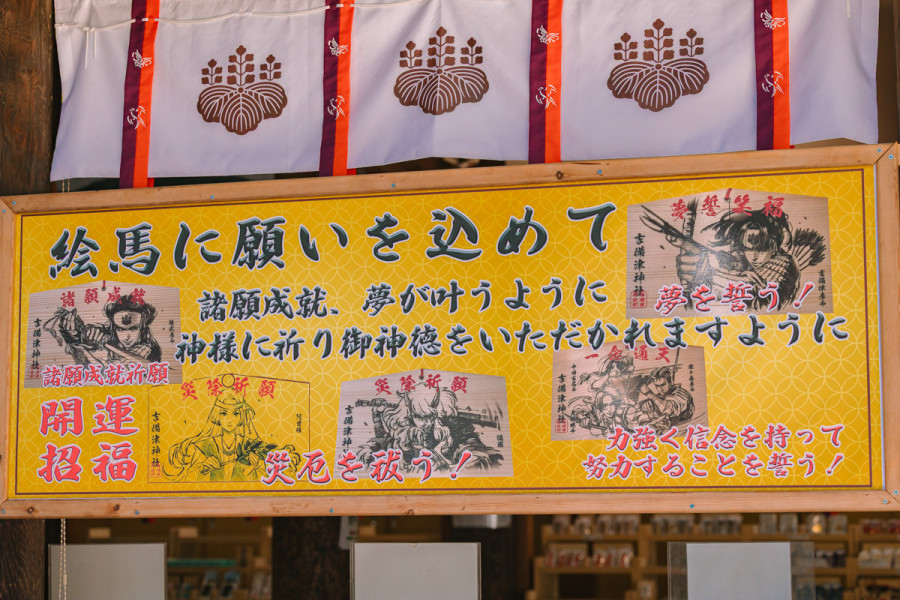 絵馬に願いを込めて
諸願成就、夢が叶うように
神様に祈り御神徳をいただかれますように
夢誓笑福
吉備津神社
夢を誓う!
諸願成就
吉備津神社
諸願成就祈願
開運
招福
災除祈願
阿曽媛
吉備津神社
災除祈願
吉備津神社
温羅
災厄を祓う!
一念通天
吉備津神社
力強く信念を持って
努力することを誓う!